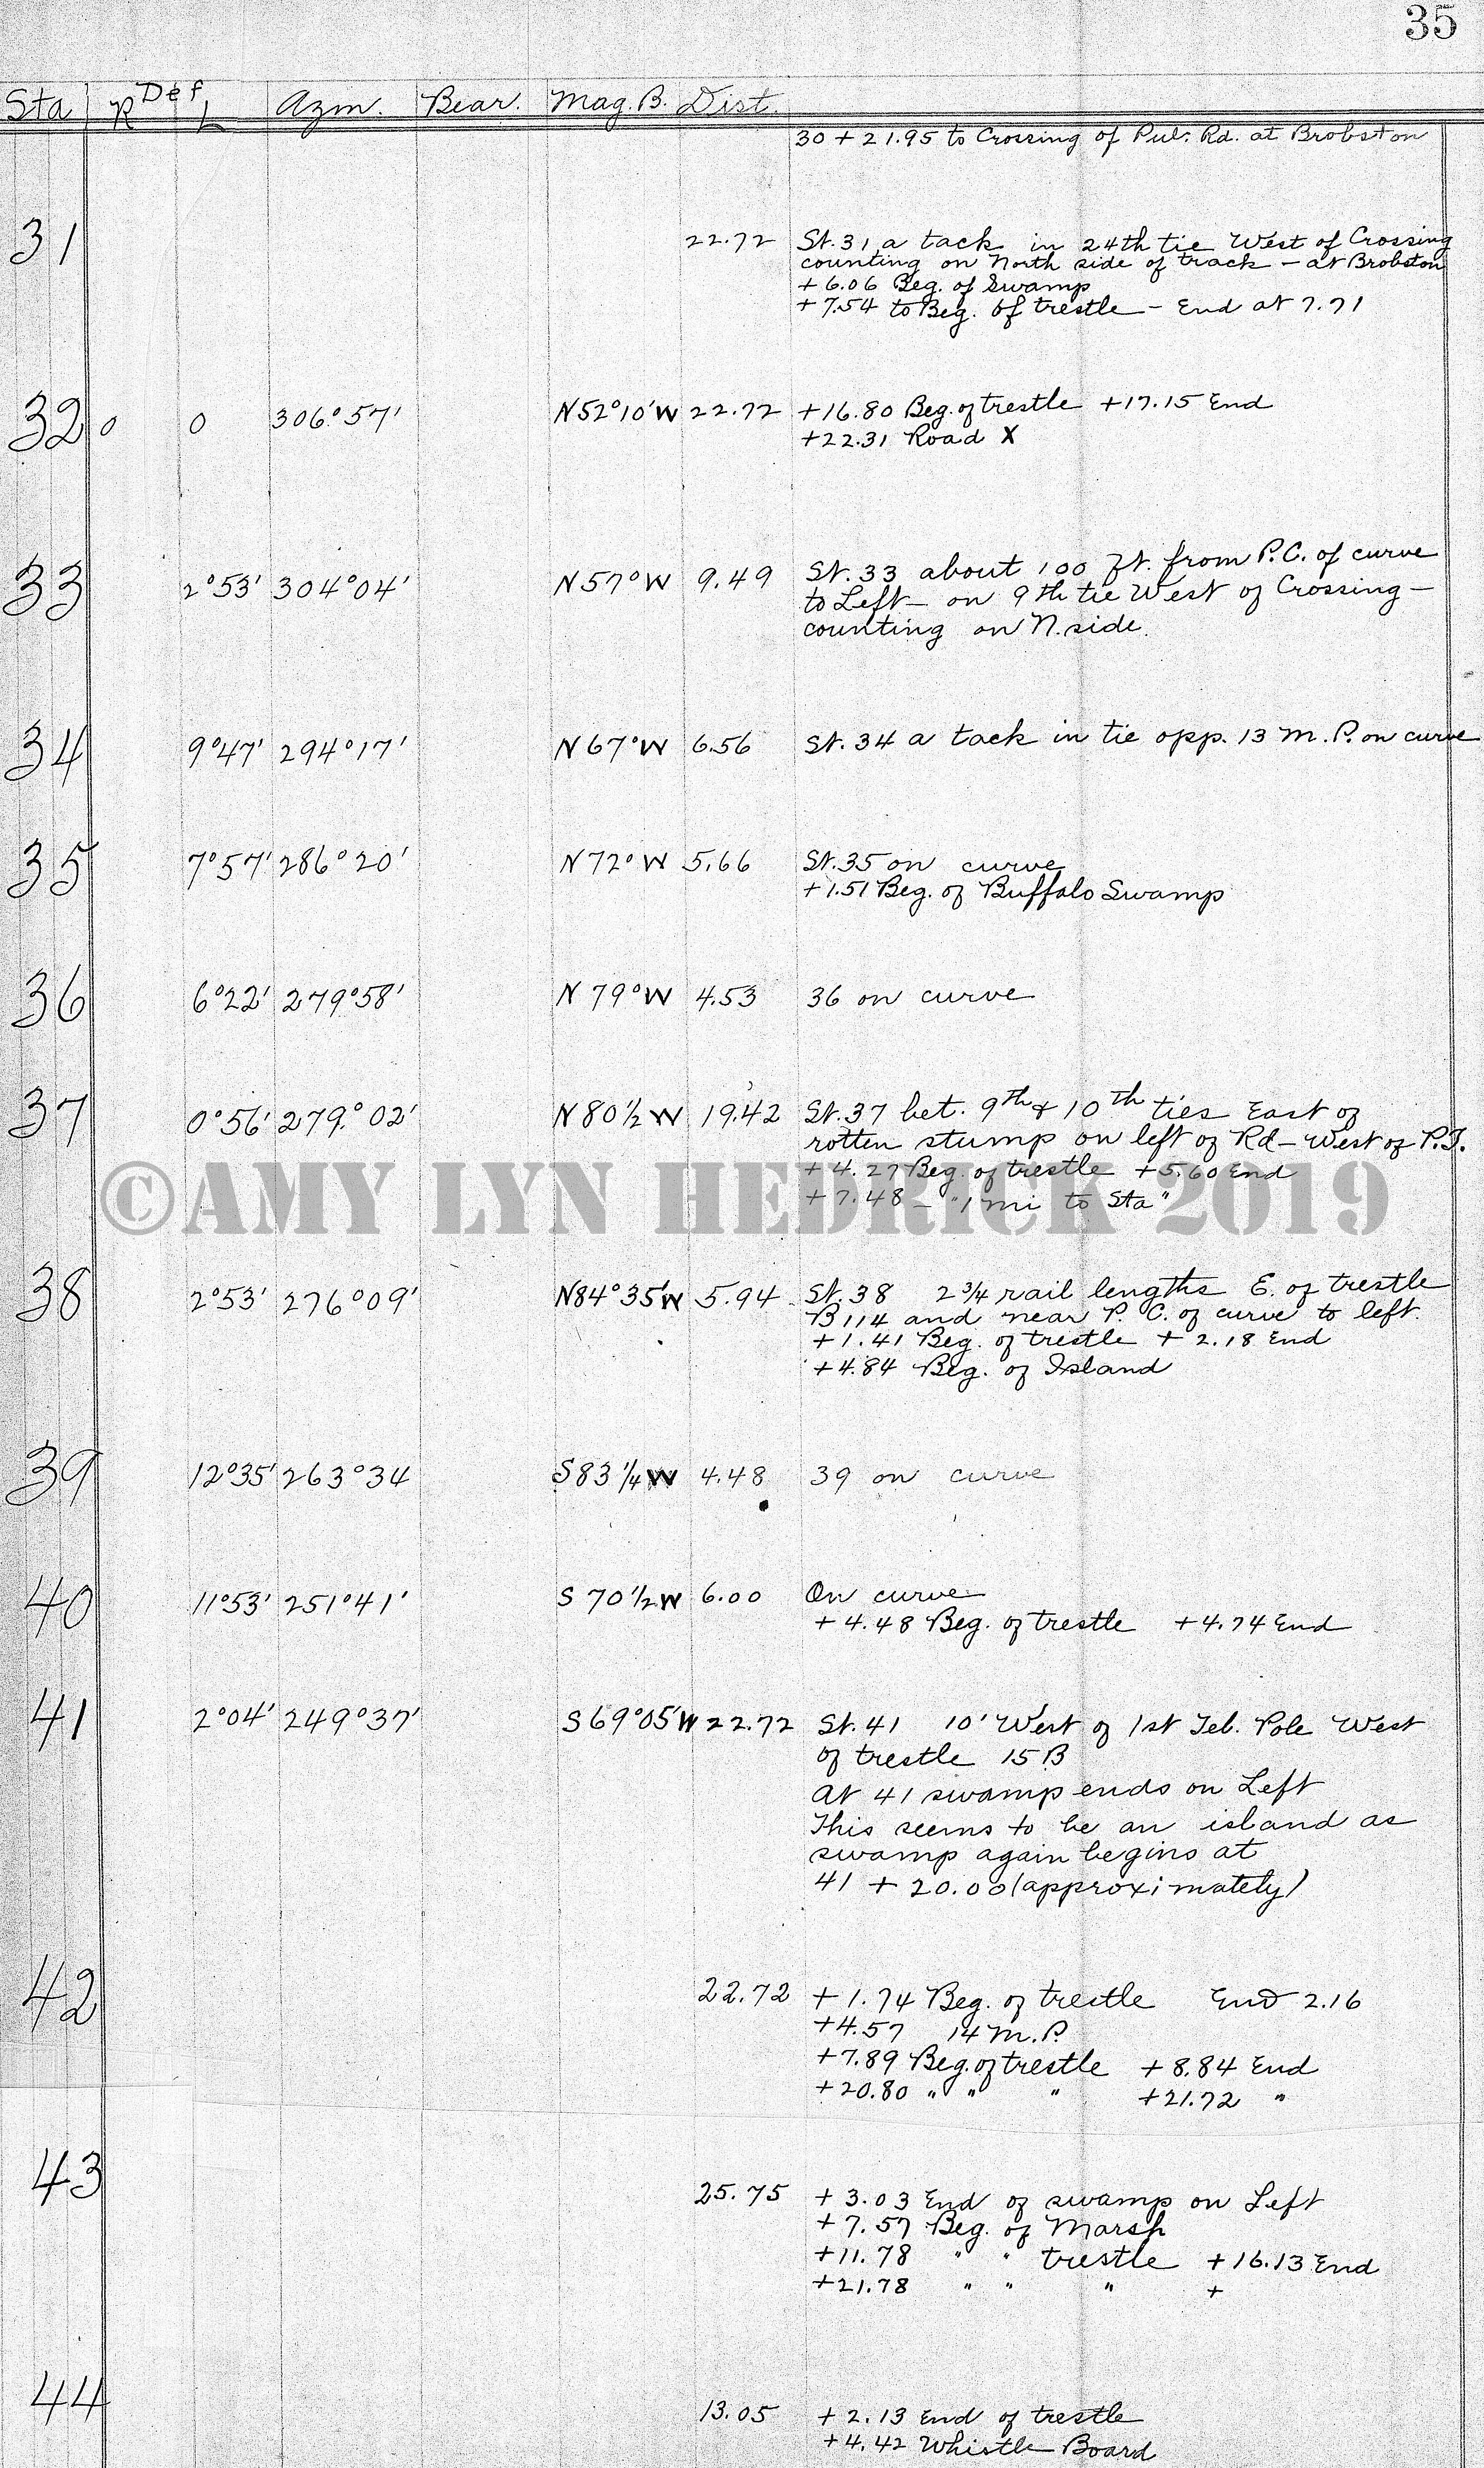 35
Sta R Def L Azm. Bear. Mag. B. Dist.
30 + 21.95 to Crossing of Pub. Rd. at Brobston
31 22.72 St. 31 a tack in 24th tie West of Crossing
counting on North side of track - at Brobston
+ 6.06 Beg. of Swamp
+ 7.54 to Beg. of trestle - End at 7.71
32 0 0 306° 57' N52°10'W 22.72 +16.80 Beg. of trestle +17.15 End
+22.31 Road X
33 2°53' 304°04' N57°W 9.49 St. 33 about 100 ft. from P.C. of curve
to Left - on 9th tie West of Crossing -
counting on N. side.
34 9°47' 294°17' N67°W 6.56 St. 34 a tack in tie opp. 13 M.P. on curve
35 7°57' 286°20' N72°W 5.66 St. 35 on curve
+ 1.51 Beg. of Buffalo Swamp
36 6°22' 279°58' N79°W 4.53 36 on curve
37 0°56' 279°02' N80½W 19.42 St. 37 bet. 9th & 10th ties East of
rotten stump on left of Rd - West of P.T.
+ 4.27 Beg. of trestle + 5.60 End
+ 7.48 - "1 mi to Sta"
©AMY LYN HEDRICK 2019
38 2°53' 276°09' N84°35'W 5.94 St. 38 2¾ rail lengths E. of trestle
B114 and near P.C. of curve to left.
+ 1.41 Beg. of trestle + 2.18 End
+ 4.84 Beg. of Island
39 12°35' 263°34 S83¼W 4.48 39 on curve
40 11°53' 251°41' S70½W 6.00 On curve
+ 4.48 Beg. of trestle + 4.74 End
41 2°04' 249°37' S69°05'W 22.72 St. 41 10' West of 1st Tel. Pole West
of trestle 15 B
At 41 swamp ends on Left
This seems to be an island as
swamp again begins at
41 + 20.00 (approximately)
42 22.72 + 1.74 Beg. of trestle End 2.16
+4.57 14 M.P.
+7.89 Beg. of trestle + 8.84 End
+20.80 " " " +21.72 "
43 25.75 + 3.03 End of swamp on Left
+ 7.57 Beg. of Marsh
+11.78 " " trestle +16.13 End
+21.78 " " " +
44 13.05 + 2.13 End of trestle
+4.42 Whistle Board